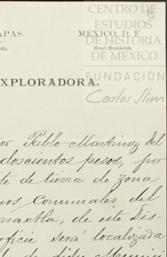 APAS.
MEXICO, D. F.
Hotel Humboldt.
CENTRO DE
ESTUDIOS
DE HISTORIA
DE MEXICO.
EXPLORADORA.
FUNDACIÓN
Carlos Slim
Pablo Martinez del
doscientos pesos, por
te de tierra de zona
nos Comunales, del
de este Dis-
será localizada